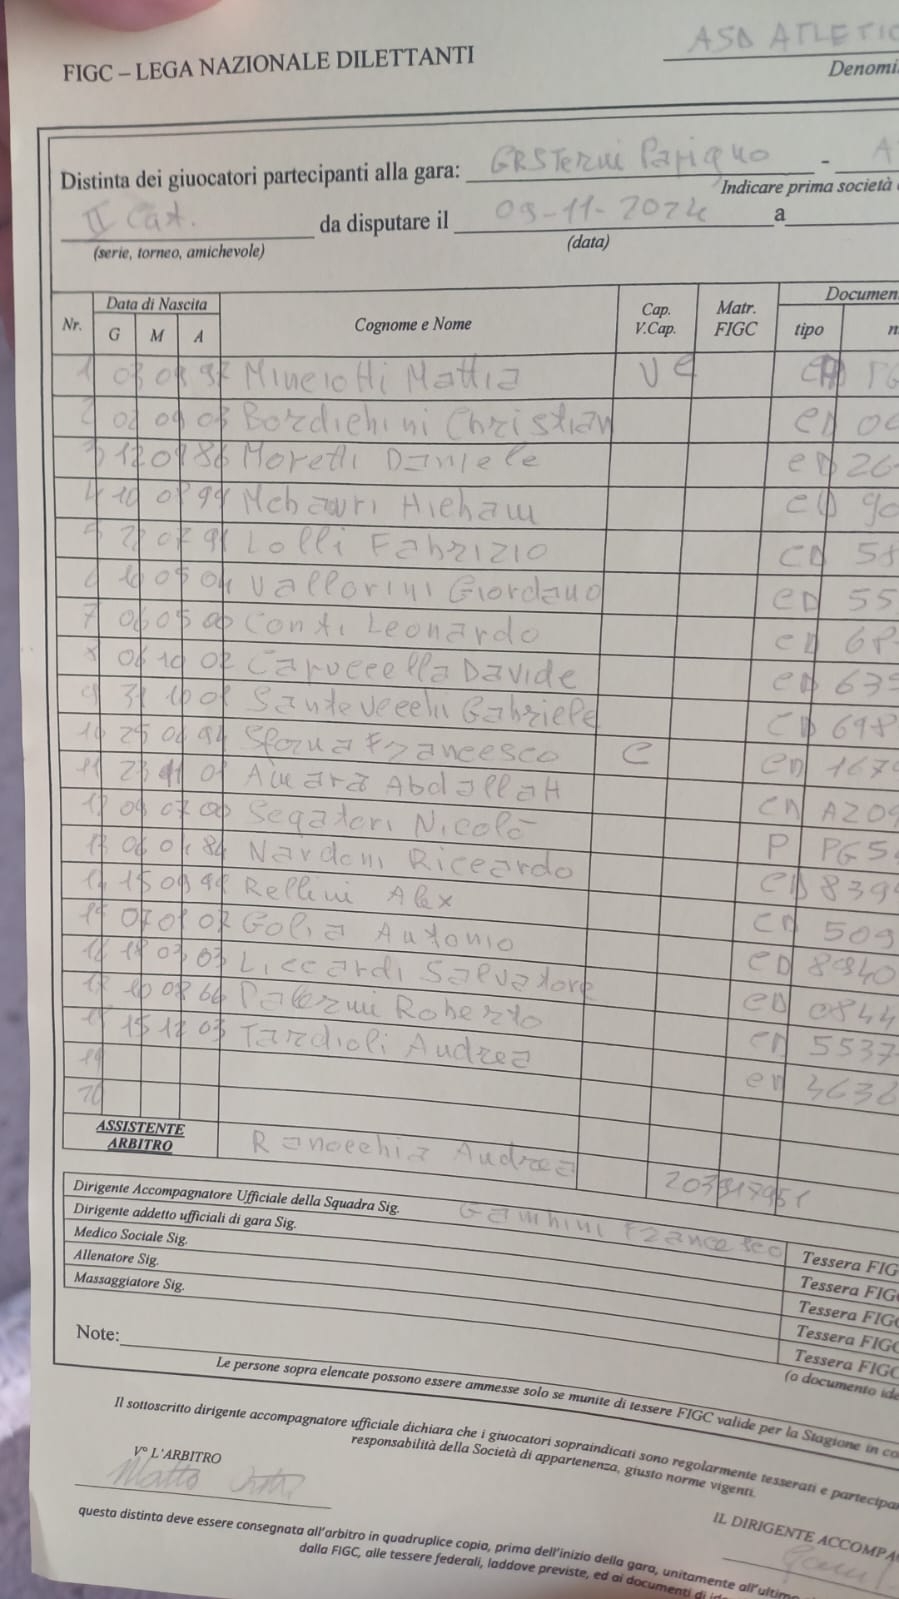 ASD ATLETIC
FIGC – LEGA NAZIONALE DILETTANTI
Denomi
Distinta dei giuocatori partecipanti alla gara: GRSTerni Papigno - A
Indicare prima società
II Cat. da disputare il 09-11-2024 a
(serie, torneo, amichevole) (data)
Nr. Data di Nascita Cognome e Nome Cap. V.Cap. Matr. FIGC Documen
G M A tipo n
1 03 08 97 Minciotti Mattia VC CD PG
2 02 09 03 Bordichini Christian CD
3 12 09 86 Moretti Daniele CD 26
4 10 08 99 Mchaouri Hicham CD 90
5 22 07 91 Lolli Fabrizio CD 58
6 10 05 04 Vallorini Giordano CD 55
7 06 05 00 Conti Leonardo CD 68
8 06 10 02 Caruccella Davide CD 639
9 31 10 01 Santevecchi Gabriele CD 698
10 25 06 94 Sforna Francesco C CD 1679
11 23 11 01 Amara Abdallah CD AZ09
12 09 07 00 Segatori Nicolò P PG5
13 06 01 84 Nardoni Riccardo CD 8399
14 15 09 99 Rellini Alex CD 509
15 07 01 02 Golia Antonio CD 8940
16 18 03 03 Liccardi Salvatore CD 0844
17 10 08 66 Palermi Roberto CD 5537
18 15 12 03 Tardioli Andrea CD 3636
19
20
ASSISTENTE ARBITRO Ranocchia Andrea 203817951
Dirigente Accompagnatore Ufficiale della Squadra Sig. Gambini Francesco Tessera FIG
Dirigente addetto ufficiali di gara Sig. Tessera FIG
Medico Sociale Sig. Tessera FIG
Allenatore Sig. Tessera FIG
Massaggiatore Sig. Tessera FIGC
Note:
(o documento ide
Le persone sopra elencate possono essere ammesse solo se munite di tessere FIGC valide per la Stagione in co
Il sottoscritto dirigente accompagnatore ufficiale dichiara che i giuocatori sopraindicati sono regolarmente tesserati e partecipa
responsabilità della Società di appartenenza, giusto norme vigenti.
V° L'ARBITRO
IL DIRIGENTE ACCOMPA
questa distinta deve essere consegnata all'arbitro in quadruplice copia, prima dell'inizio della gara, unitamente all'ultimo
dalla FIGC, alle tessere federali, laddove previste, ed ai documenti di